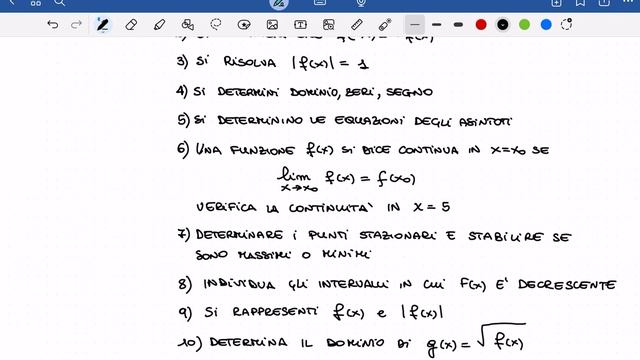 3) SI RISOLVA |f(x)| = 1
4) SI DETERMINI DOMINIO, ZERI, SEGNO
5) SI DETERMININO LE EQUAZIONI DEGLI ASINTOTI
6) UNA FUNZIONE f(x) SI DICE CONTINUA IN x=x₀ SE
lim x→x₀ f(x) = f(x₀)
VERIFICA LA CONTINUITA' IN x = 5
7) DETERMINARE I PUNTI STAZIONARI E STABILIRE SE
SONO MASSIMI O MINIMI
8) INDIVIDUA GLI INTERVALLI IN CUI F(x) E' DECRESCENTE
9) SI RAPPRESENTI f(x) e |f(x)|
10) DETERMINA IL DOMINIO DI g(x) = √f(x)